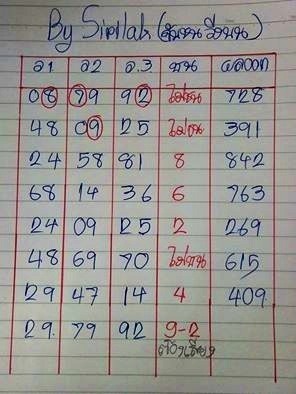 By Sirilak
ล1 ล2 ล.3 ชน ผลออก
08 79 92 ไม่ชน 728
48 09 25 ไม่ชน 391
24 58 81 8 842
68 14 36 6 763
24 09 25 2 269
48 69 70 ไม่ชน 615
29 47 14 4 409
29. 79 92 9-2